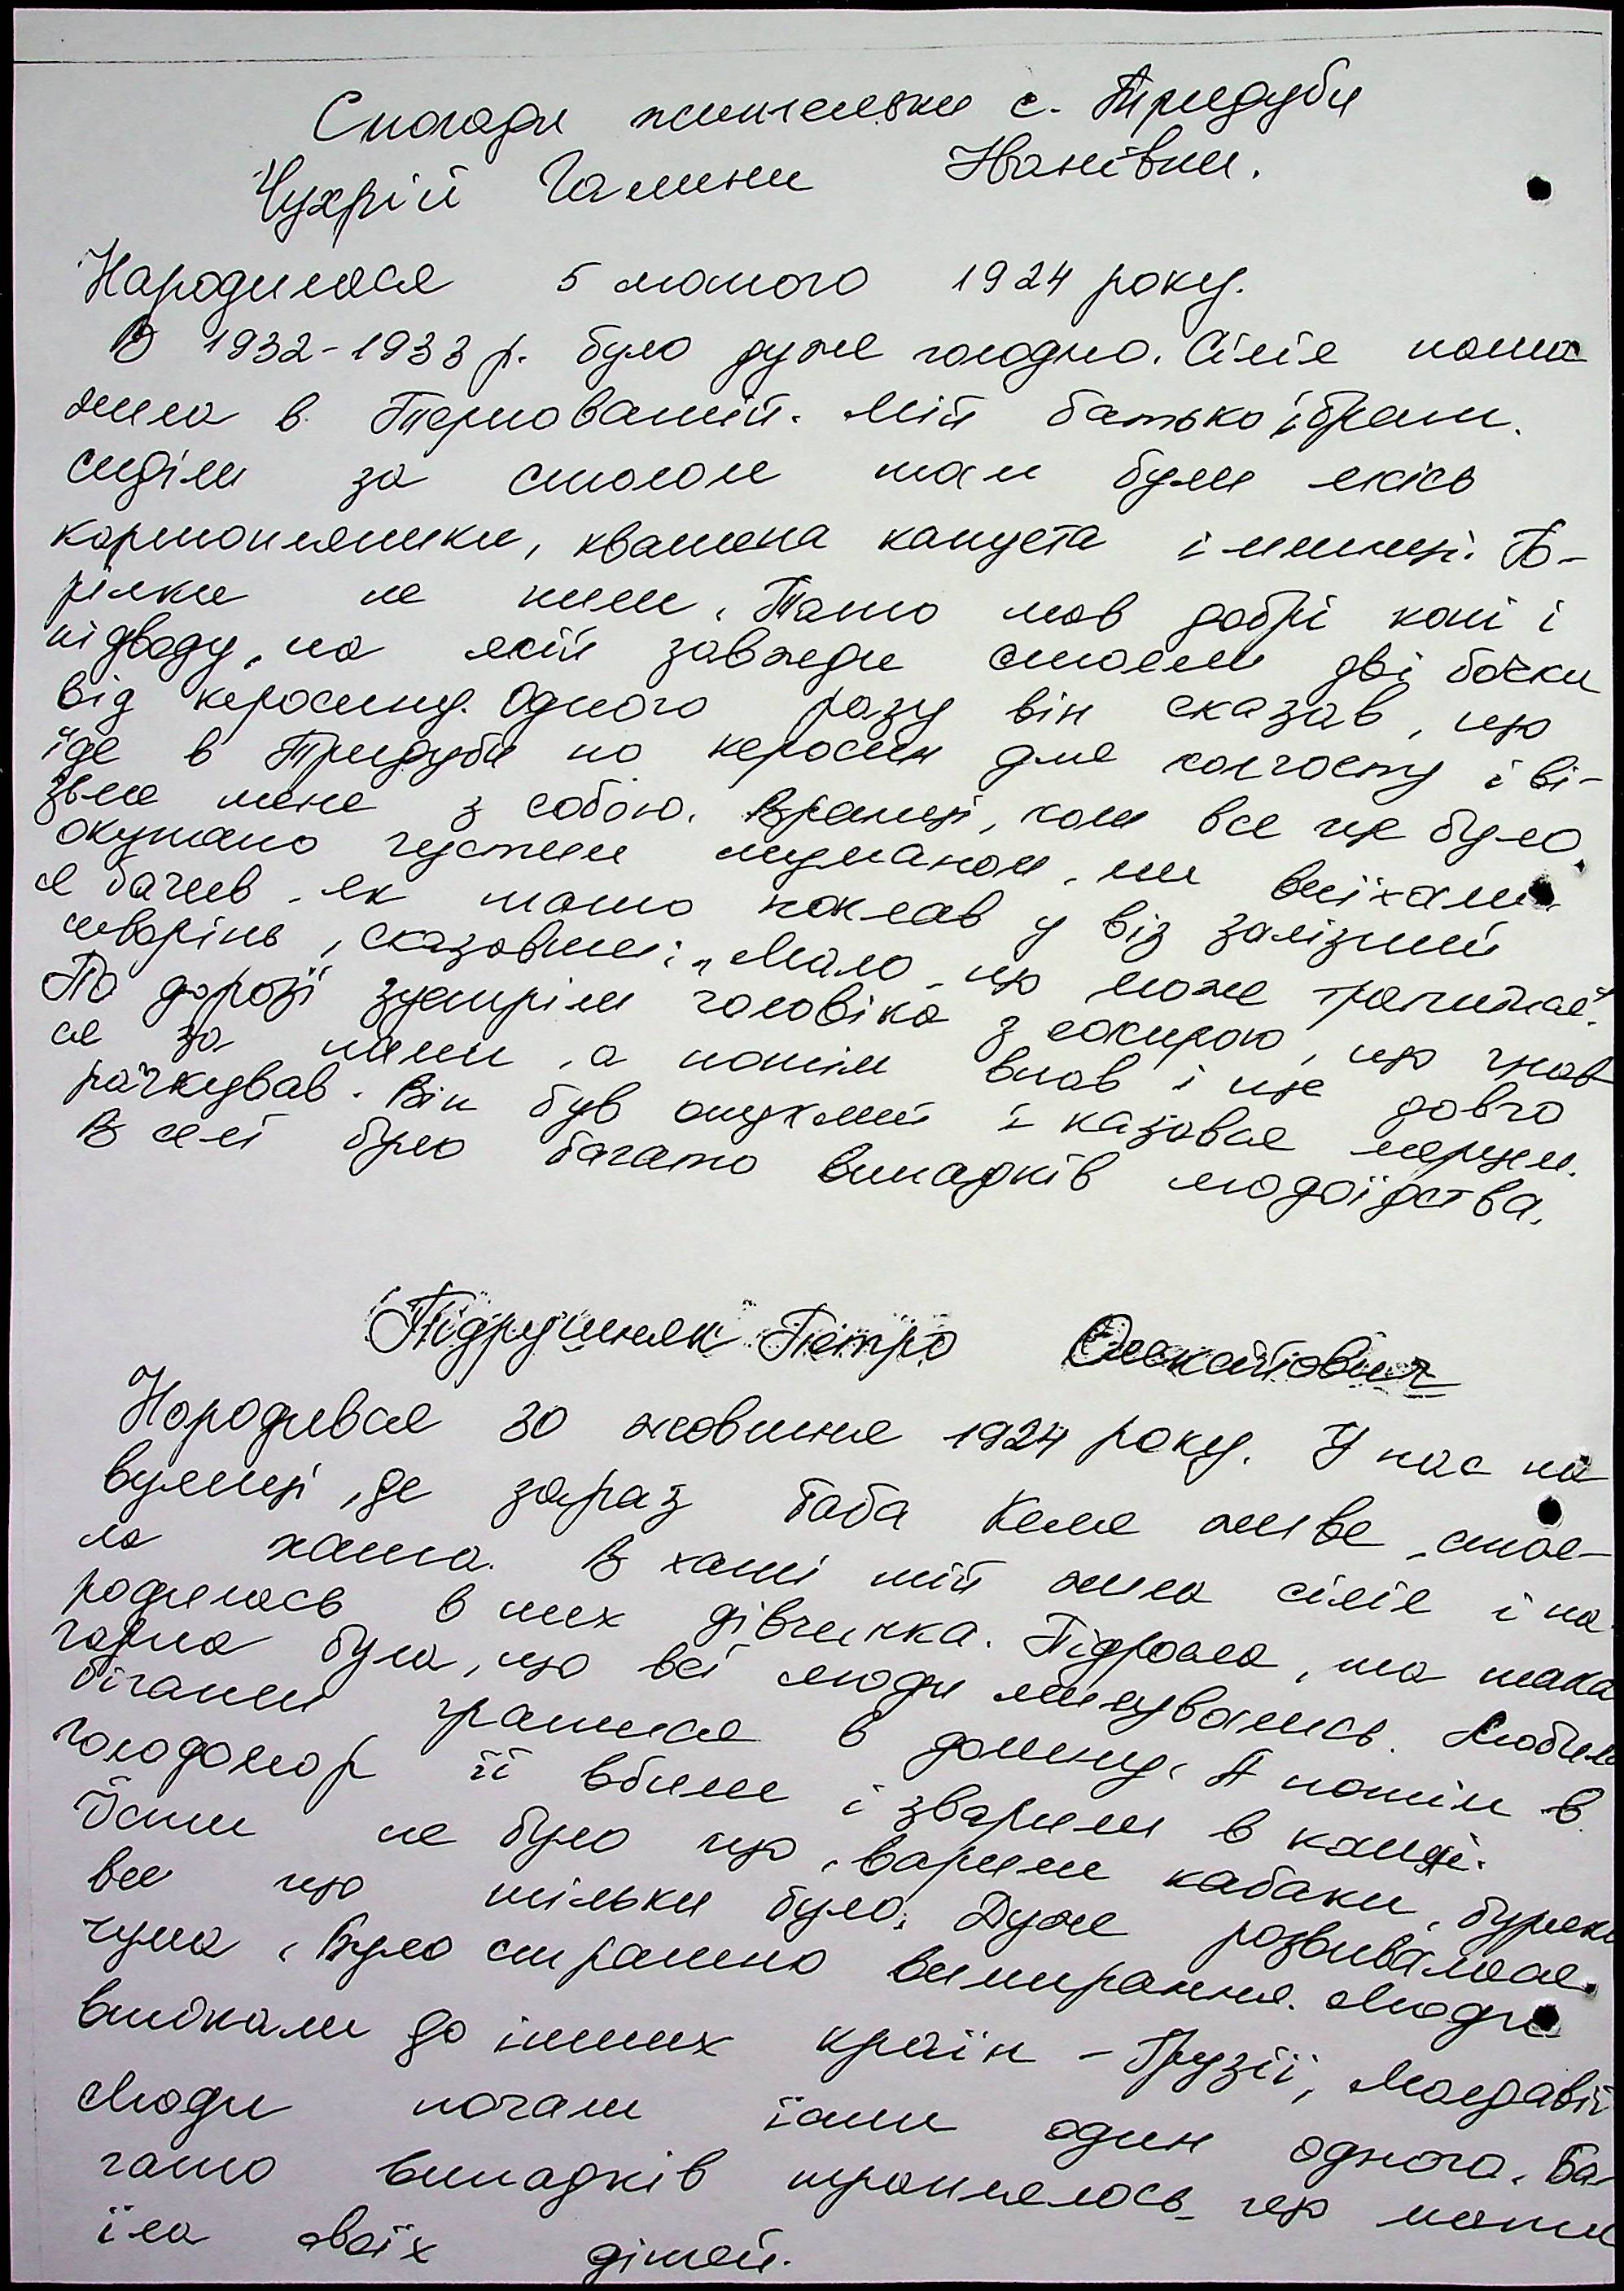 Спогади жительки с. Тридуби
Чухрій Галини Іванівни.
Народилася 5 лютого 1924 року.
В 1932-1933 р. було дуже голодно. Сім'я наша
жила в Терноватій. Мій батько і брати.
сиділи за столом там були якісь
картопляники, квашена капуста і млинці. Го-
рілки не пили. Тато мав добрі коні і
підводу, на якій завжди стояли дві бочки
від керосину. Одного разу він сказав, що
їде в Тридуби по керосин для колгоспу і ві-
зьме мене з собою. Вранці, коли все ще було
окутано густим туманом, ми виїхали.
я бачив, як тато поклав у віз залізний
шворінь, сказавши: "Мало що може трапитись"
По дорозі зустріли чоловіка з сокирою, що гнав-
ся за нами, а потім впав і ще довго
рачкував. Він був опухлий і казався мерцем.
В селі було багато випадків людоїдства.
Підрушняк Петро Олекайович
Народився 30 жовтня 1924 року. У нас на
вулиці, де зараз баба Келя живе, стоя-
ла хата. В хаті тій жила сім'я і на-
родилась в них дівчинка. Підросла, та така
гарна була, що всі люди милувались. Любила
бігати гратися в долину. А потім в
голодомор її вбили і зварили в каші.
Їсти не було що, варили кабаки, буряки
все що тільки було. Дуже розвивалася
чума. Було страшно вимирання. Люди
втікали до інших країн - Грузії, Молдавії
Люди почали їсти один одного. Ба-
гато випадків траплялось, що мати
їла своїх дітей.